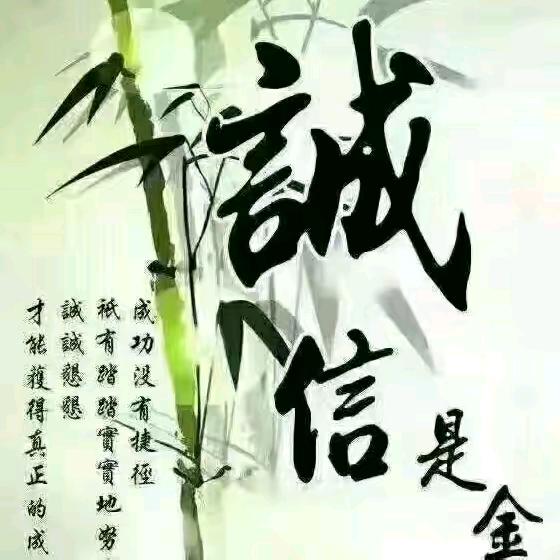 誠
信
是
金
成功没有捷徑
祇有踏踏實實地努
誠誠懇懇
才能獲得真正的成